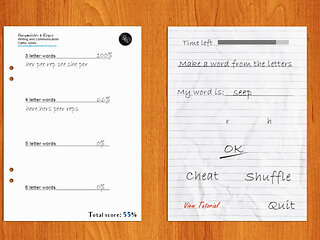 Writing and Communication
3 letter words 100%
her pee rep see she per
4 letter words 66%
here hers peer reps
5 letter words 0%
6 letter words 0%
Total score: 55%
Time left
Make a word from the letters
My word is: seep
r h
OK
Cheat Shuffle
View Tutorial Quit